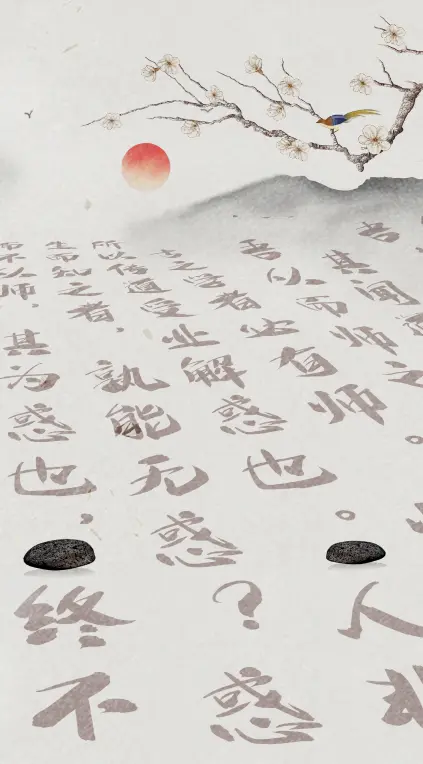 吾
其闻道
吾从而师之
古之学者必有师。
所以传道受业解惑也。人非
生而知之者，孰能无惑？惑
而不从师，其为惑也，终不